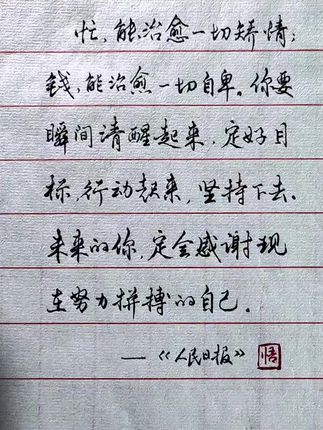 忙，能治愈一切矫情；
钱，能治愈一切自卑。你要
瞬间清醒起来，定好目
标，行动起来，坚持下去。
未来的你，定会感谢现
在努力拼搏的自己。
——《人民日报》 悟